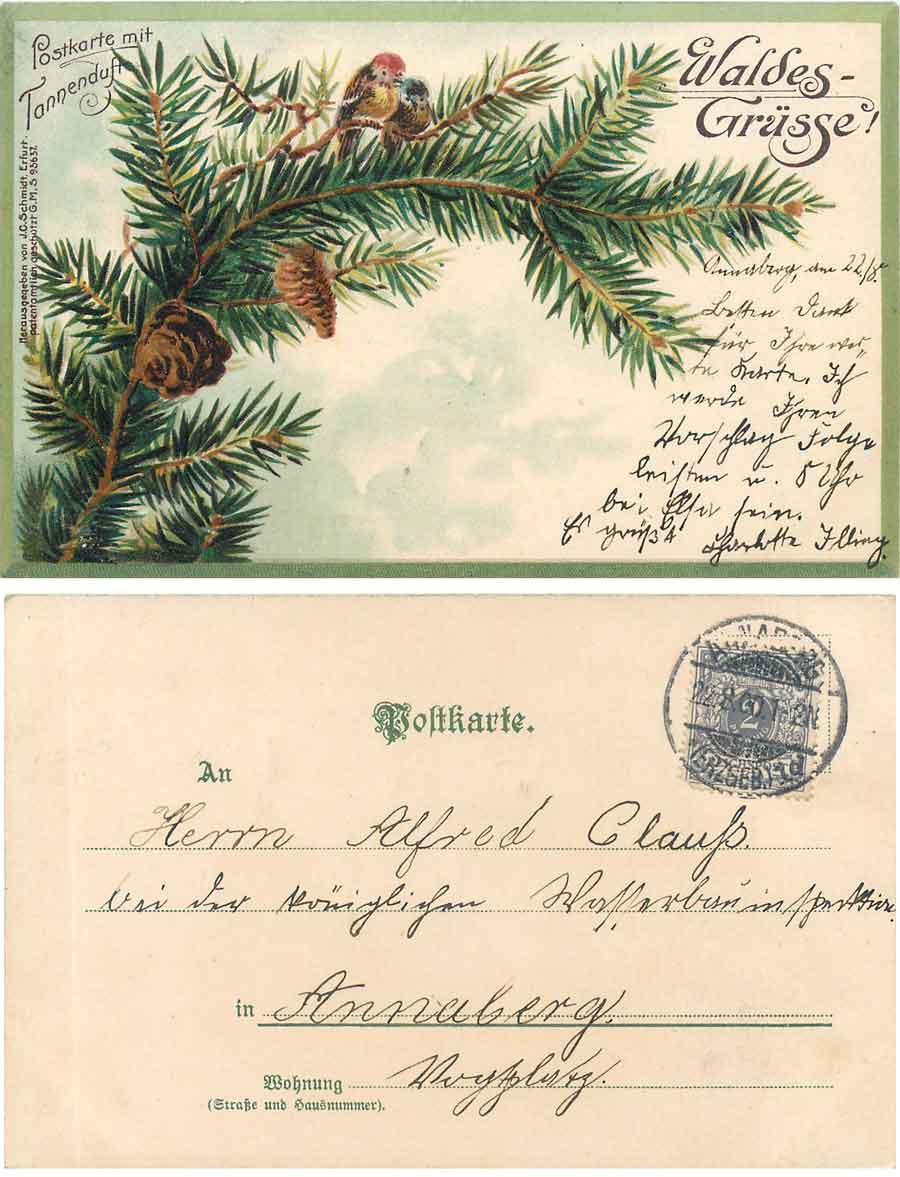 Postkarte mit
Tannenduft
Herausgegeben von J.C. Schmidt, Erfurt.
patentamtlich geschützt G.M.S 95637.
Waldes-
Grüsse!
Annaberg, am 22./8.
Besten Dank
für Ihre wer-
te Karte. Ich
werde Ihren
Vorschlag Folge
leisten u. 8 Uhr
bei Elsa sein.
Es grüßt
Charlotte Illing.
Postkarte.
2
(ERZGEB.)
An
Herrn Alfred Clauß.
bei der königlichen Wasserbauinspektion.
in Annaberg.
Wohnung Vogtplatz.
(Straße und Hausnummer).